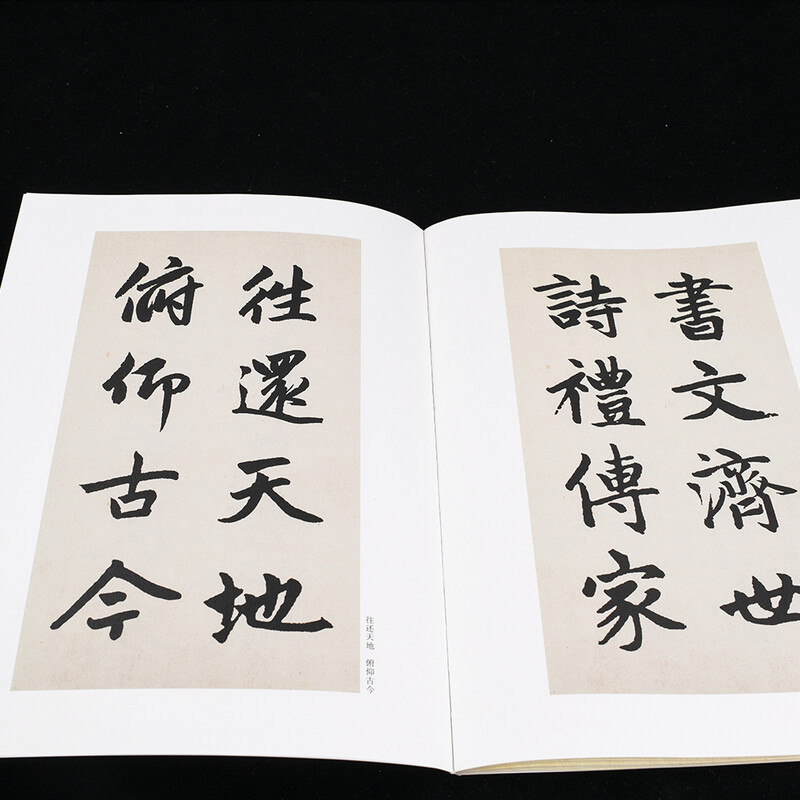 往還天地
俯仰古今
往还天地 俯仰古今
書文濟世
詩禮傳家